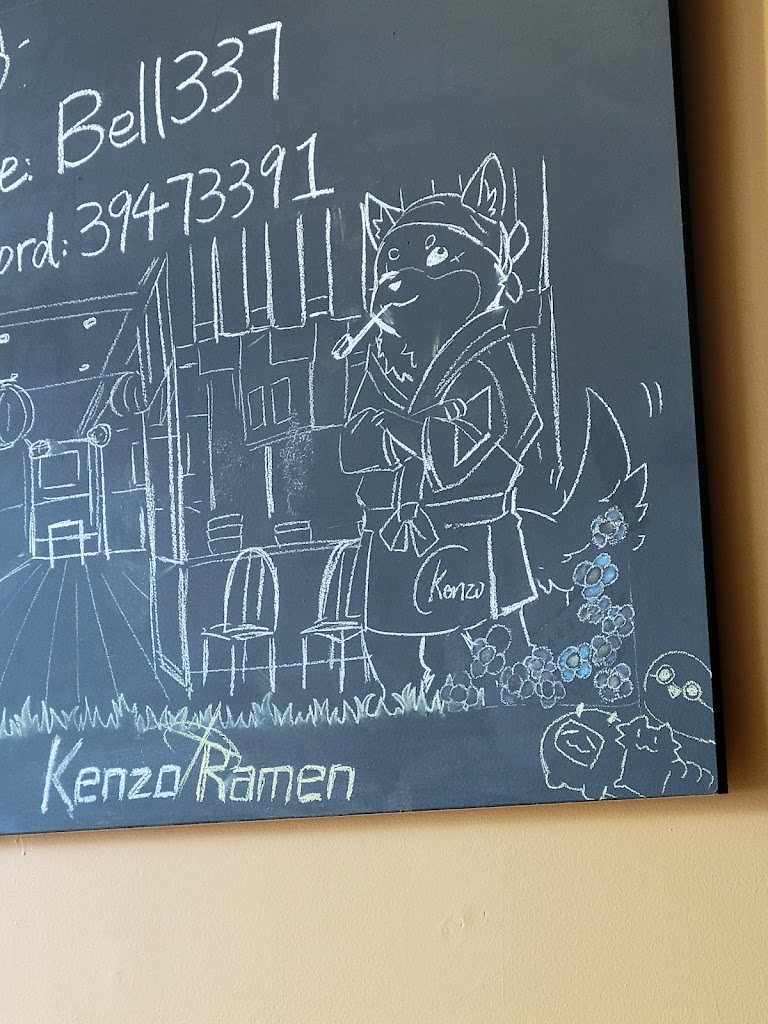 e: Bell337
ord: 39473391
Kenzo
Kenzo Ramen